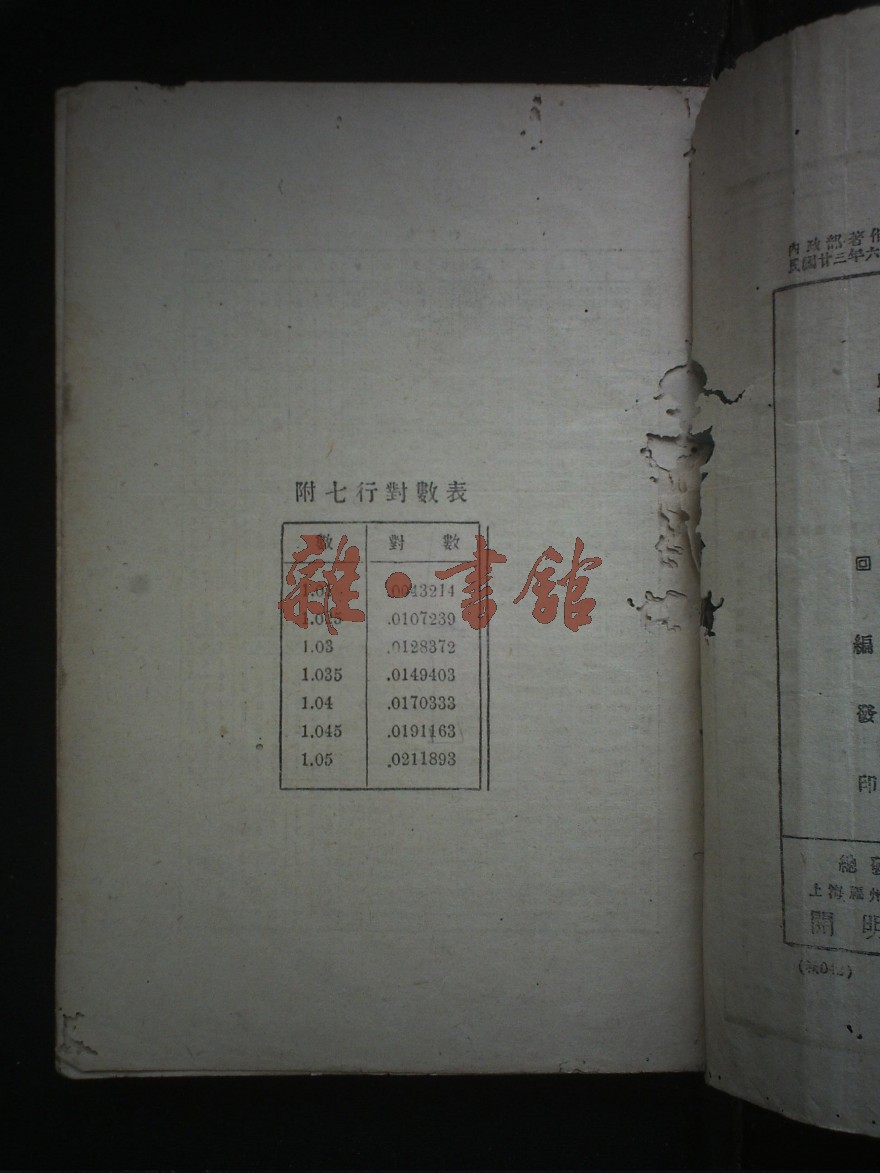 附七行對數表
數 對數
1.01 .0043214
1.025 .0107239
1.03 .0128372
1.035 .0149403
1.04 .0170333
1.045 .0191163
1.05 .0211893
雜·書館
內政部著作
民國廿三年六
編
發
印
總發
上海福州
開明